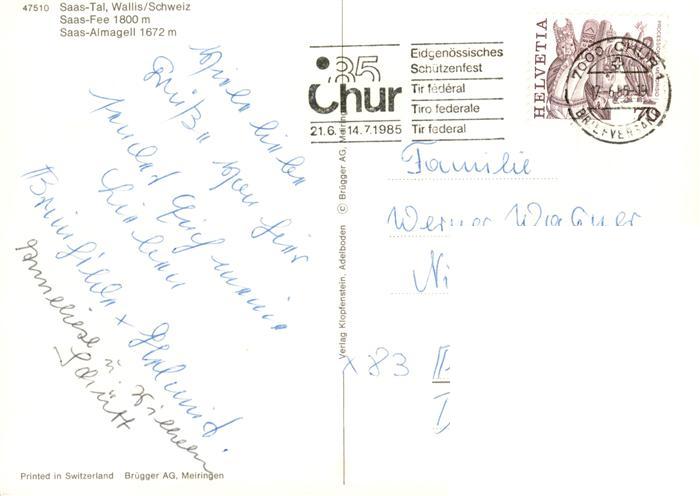 47510 Saas-Tal, Wallis/Schweiz
Saas-Fee 1800 m
Saas-Almagell 1672 m
Viele lieben
Grüße von hier
sendet Euch
Brunhilde + Helmut
Anneliese u.
'85
Chur
21.6. - 14.7.1985
Eidgenössisches
Schützenfest
Tir fédéral
Tiro federale
Tir federal
HELVETIA
70
7000 CHUR 1
BRIEFVERSAND
Familie
Werner Wagner
Ni
x 83
Verlag Klopfenstein, Adelboden © Brügger AG, Meiringen
Printed in Switzerland Brügger AG, Meiringen